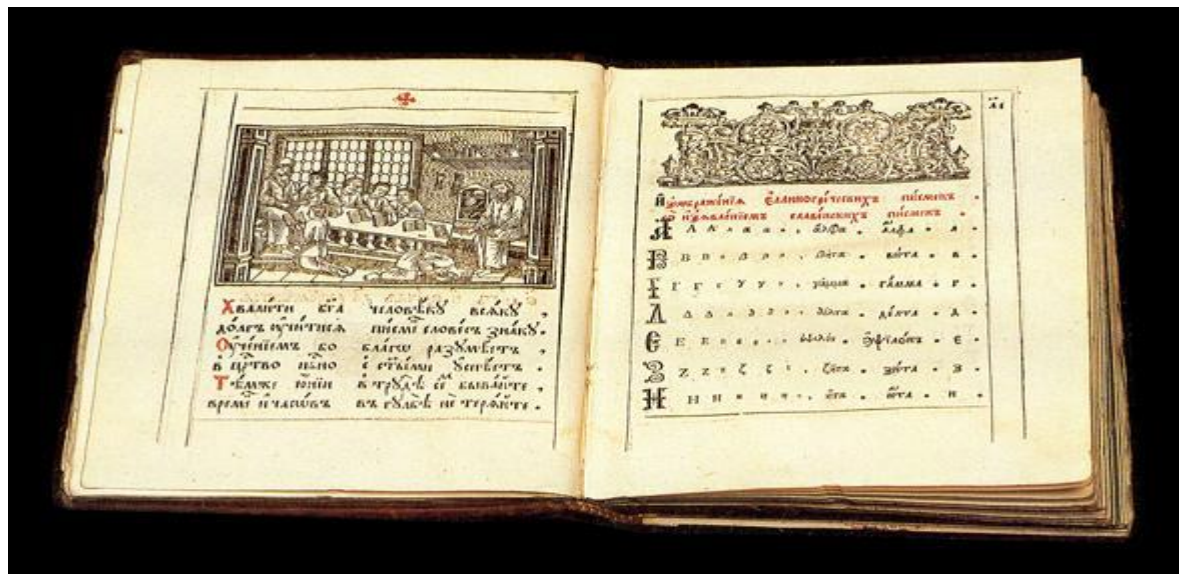 Хвалити бг҃а человѣку всѧку ,
до́лгъ ᲂу҆чи́тисѧ писме́ словесъ зна́ку .
Оу҆че́нїемъ бо благѡ разꙋмѣетъ ,
в црⷭ҇тво нб҃но с ст҃ы́ми ᲂу҆спѣетъ .
Тѣ́мже ю҆́нїи в трꙋдѣ́хъ бывайте ,
време́нъ и часѡвъ въ гꙋльбѣ̀ не терѧ́йте .
И҆з̾ѡбраже́нїѧ Е҆ллиногре́ческихъ писменъ .
со и҆з̾ѧвле́нїемъ славе́нскихъ писменъ .
Α Α α . ἄλφα . а҆́лфа . а .
Β Β . βῆτα . ви́та . в .
Γ Γ γ . γάμμα . га́мма . г .
Δ Δ . δέλτα . де́лта . д .
Ε Ε Ε . ἐψιλόν . є҆ѱїло́нъ . е .
Ζ Ζ Ζ ζ . ζῆτα . зи́та . з .
Η Η Η . ἦτα . и҆́та . и .